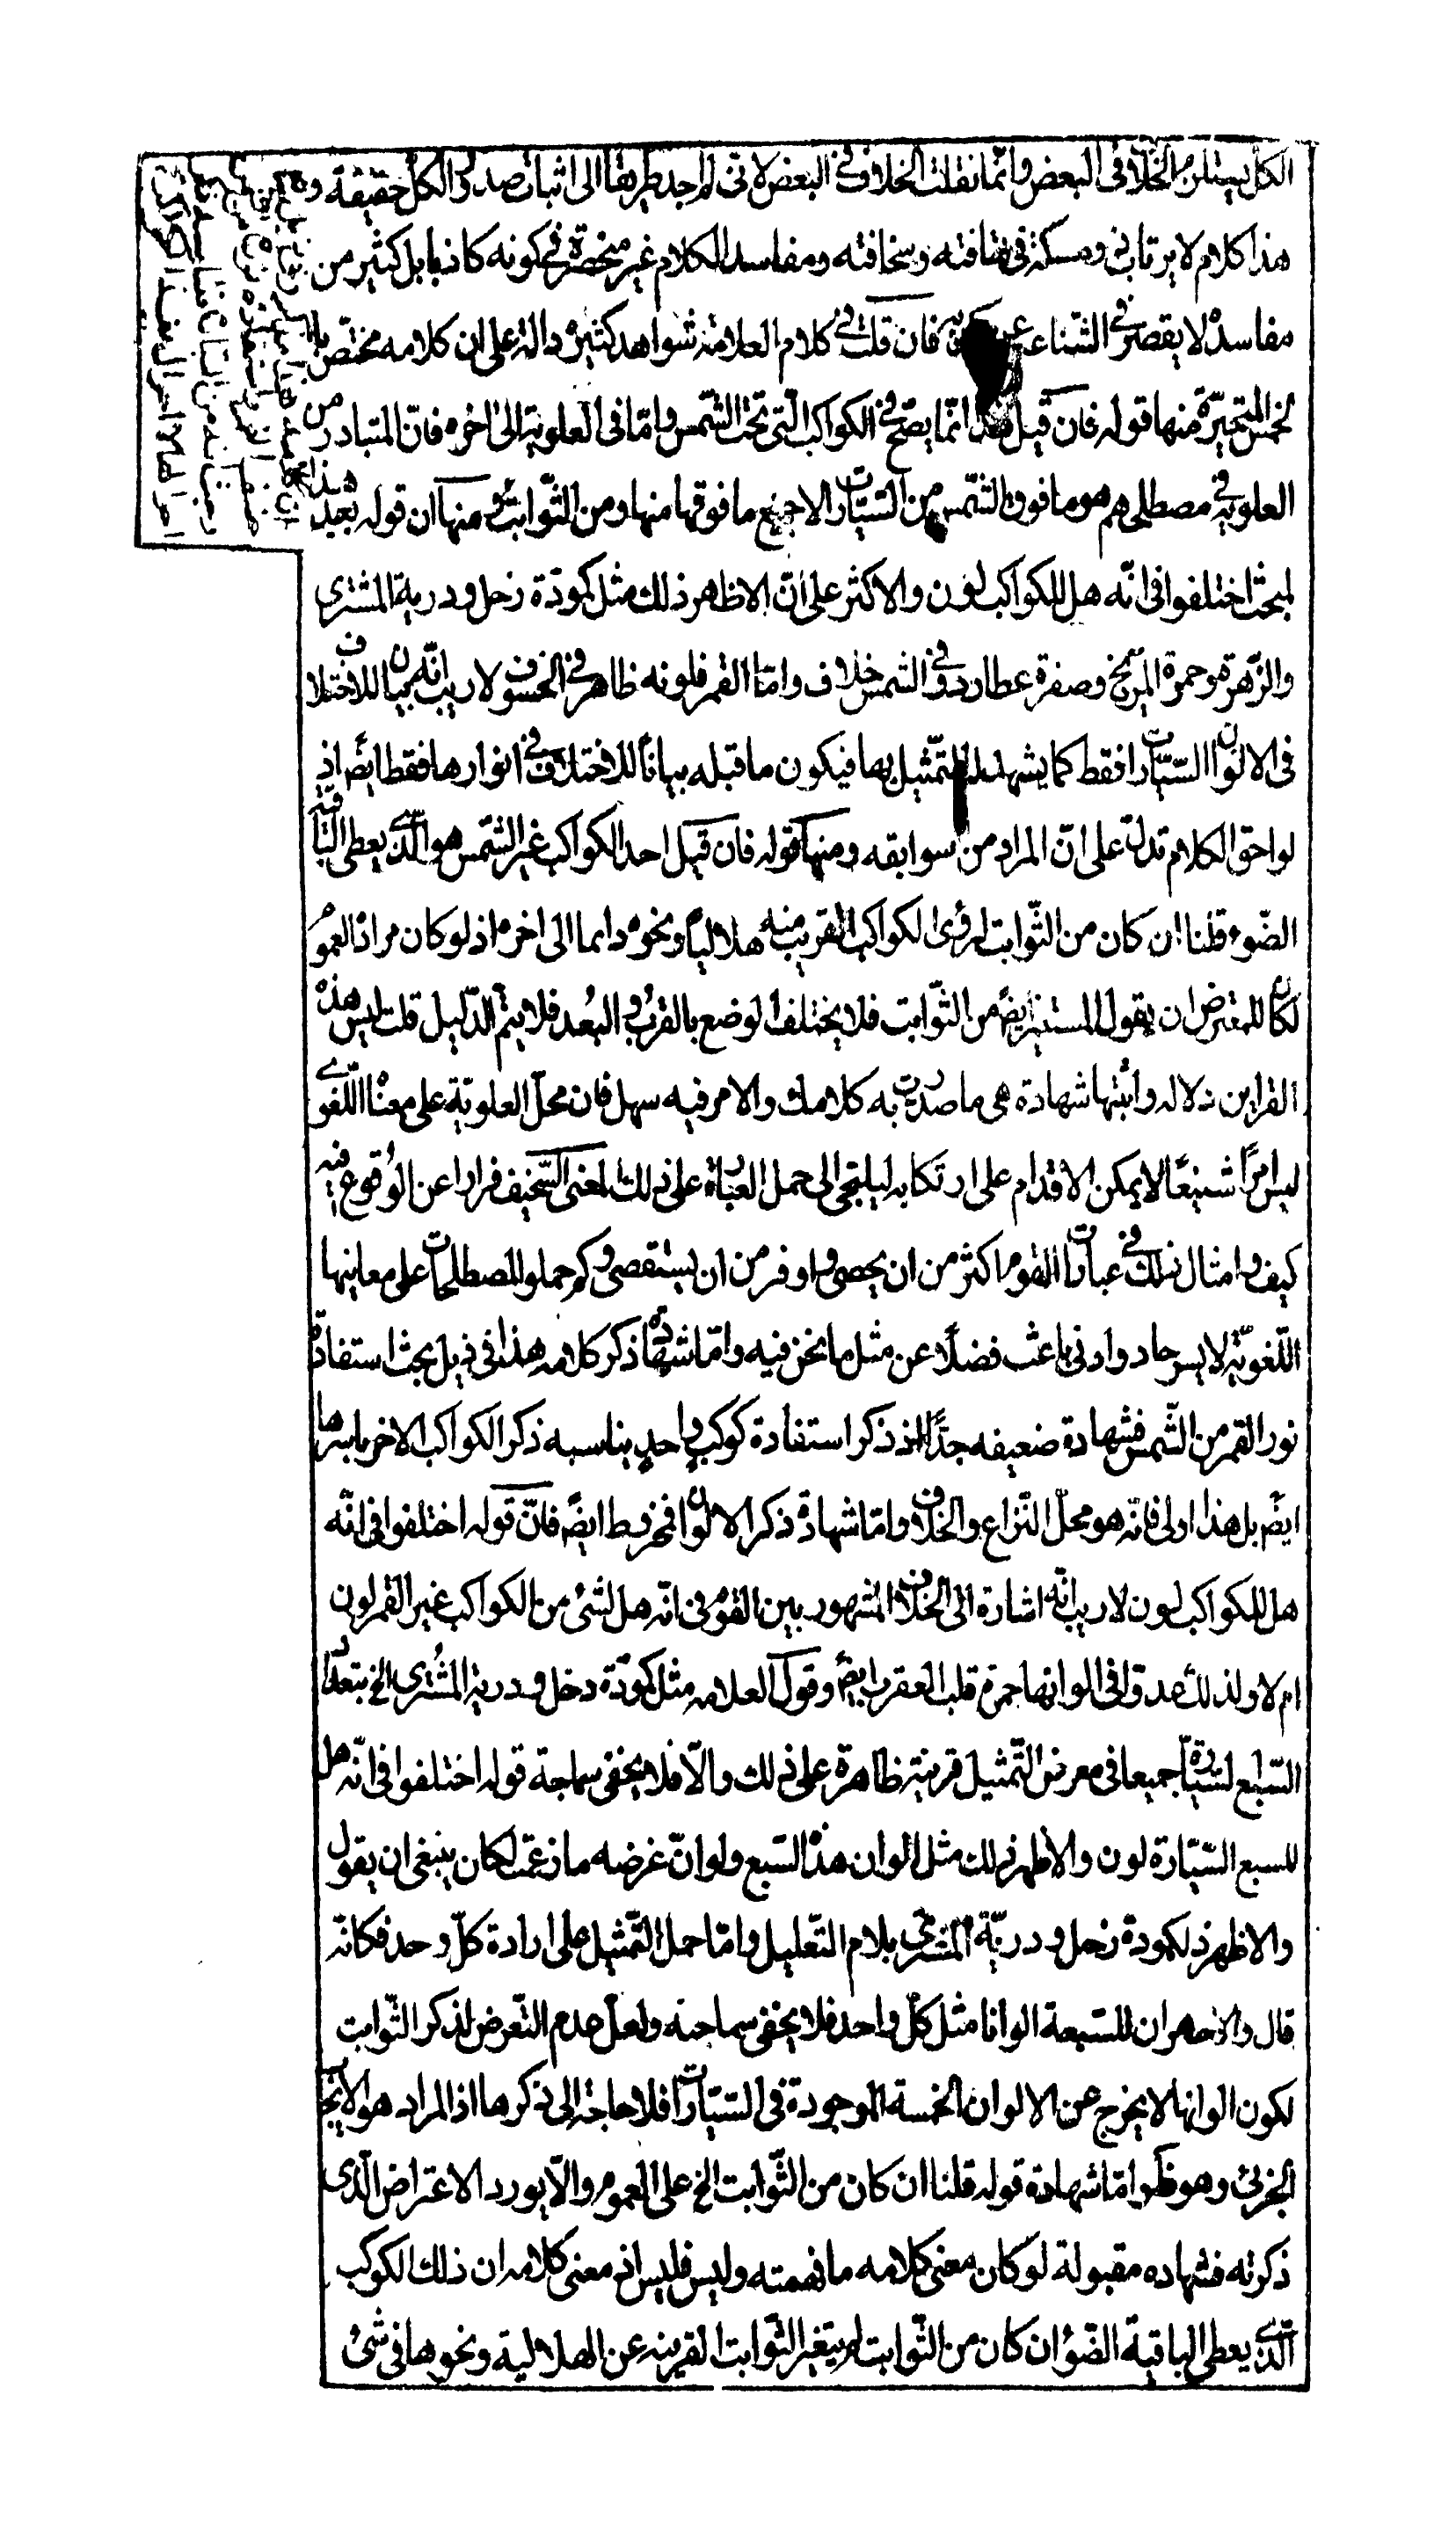 الكل يستلزم الخلاف فى البعض وانما نقلت الخلاف فى البعض لانى لم اجد طريقا الى اثبات صدق الكل حقيقة
هذا كلام لا يرتاب ذو مسكة فى تهافته وسخافته ومفاسد الكلام غير منحصرة فى كونه كاذبا بل كثير من
مفاسده لا يقصر فى الشناعة عن فان قلت فى كلام العلامة شواهد كثيرة دالة على ان كلامه مختص بال
خمس المتحيرة منها قوله فان قيل هذا انما يصح فى الكواكب التى تحت الشمس واما فى العلوية الى اخره فان المتبادر من
العلوية فى مصطلحهم هو ما فوق الشمس من السيارات لا جميع ما فوقها منها ومن الثوابت ومنها ان قوله بعيد هذا
المبحث اختلفوا فى انه هل للكواكب لون والاكثر على ان الاظهر ذلك مثل كمودة زحل ودرية المشترى
والزهرة وحمرة المريخ وصفرة عطارد وفى الشمس خلاف واما القمر فلونه ظاهر فى الخسوف لا ريب انه بيان للاختلاف
فى الالوان السيارات فقط كما يشهد له التمثيل بها فيكون ما قبله بيانا للاختلاف فى انوارها فقط ايضا اذ
لواحق الكلام تدل على ان المراد من سوابقه ومنها قوله فان قيل احد الكواكب غير الشمس هو الذى يعطى الباقية
الضوء قلنا ان كان من الثوابت لرؤى الكواكب القريب منه هلاليا ونحوه دائما الى اخره اذ لو كان مراده العموم
لكان للمعترض ان يقول المستنير ايضا من الثوابت فلا يختلف الوضع بالقرب والبعد فلا يتم الدليل قلت ليس هذه
القراين دلالة واثبتها شهادة هى ما صدرت به كلامك والامر فيه سهل فان محل العلوية على معناه اللغوى
ليس امرا شنيعا لا يمكن الاقدام على ارتكابه ليلتجى الى حمل العبارة على ذلك المعنى السخيف فرارا عن الوقوع فيه
كيف وامثال ذلك فى عبارات القوم اكثر من ان يحصى واوفر من ان يستقصى وكم حملوا المصطلحات على معانيها
اللغوية لا يسر حاد وادنى باعث فضلا عن مثل ما نحن فيه واما شهادة ذكر كلامه هذا فى ذيل بحث استفادة
نور القمر من الشمس فشهادة ضعيفه جدا اذ ذكر استفادة كوكب واحد يناسبه ذكر الكواكب الاخر باسرها
ايضا بل هذا اولى فانه هو محل النزاع والخلاف واما شهادة ذكر الالوان فمخرط ايضا فان قوله اختلفوا فى انه
هل للكواكب لون لا ريب انه اشارة الى الخلاف المشهور بين القوم فى انه هل لشئ من الكواكب غير القمر لون
ام لا ولذلك عدوا فى الوانها حمرة قلب العقرب ايضا وقول العلامه مثل كمودة زحل ودرية المشترى الخ بتعداد
السبع السيارة جميعا فى معرض التمثيل قرينة ظاهرة على ذلك والا فلا يخفى سماجة قوله اختلفوا فى انه هل
للسبع السيارة لون والاظهر ذلك مثل الوان هذه السبع ولو ان غرضه ما زعمت لكان ينبغى ان يقول
والاظهر ذلك لكمودة زحل ودرية المشترى بلام التعليل واما حمل التمثيل على ارادة كل وحد فكانه
قال والاظهر ان للسبعة الوانا مثل كل واحد فلا يخفى سماجته ولعل عدم التعرض لذكر الثوابت
لكون الوانها لا يخرج عن الالوان الخمسة الموجودة فى السيارات فلا حاجة الى ذكرها اذ المراد هو الايجاب
الجزئى وهو ظ واما شهادة قوله قلنا ان كان من الثوابت الخ على العموم والا يورد الاعتراض الذى
ذكرته فشهاده مقبولة لو كان معنى كلامه ما فهمته وليس فليس اذ معنى كلامه ان ذلك الكوكب
الذى يعطى الباقية الضوء ان كان من الثوابت لم يتغير الثوابت القريبه عن الهلالية ونحوها فى شئ